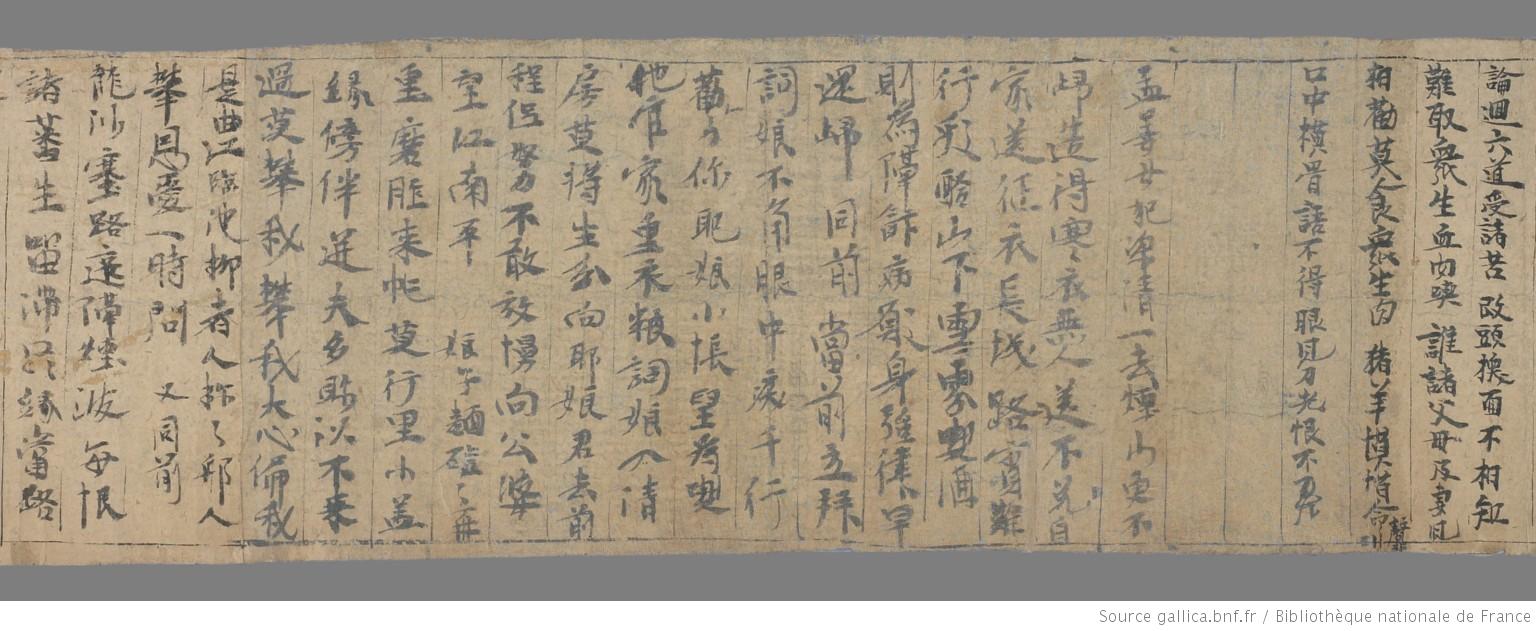 論迴六道受諸苦 改頭換面不相知
難取衆生血肉喫 誰諸父母及妻兒
相勸莫食衆生肉 猪羊懼惜命
口中橫骨語不得眼見刀光恨不
孟姜女犯梁清一去煙山更不
歸造得寒衣無人送不免自
家送征衣長城路實難
行形酪山下雪雰雰喫酒
則為隔飰病願身強健早
還歸 同前 當前立拜
詞娘不角眼中淚千行
勸々你耶娘小悵望為喫
他官家重衣粮詞娘入清
房莫將生分向耶娘君去前
程但努力不敢放慢向公婆
望江南平 娘子麵磑了再
重磨昨來把莫行里小蓋
緣傍伴迸夫多所以不來
過莫攀我攀我大心偏我
是曲江臨池柳者人折了那人
攀恩愛一時間 又同前
龍沙塞路遠隔煙波每恨
諸蕃生留滯只緣當路
Source gallica.bnf.fr / Bibliothèque nationale de France